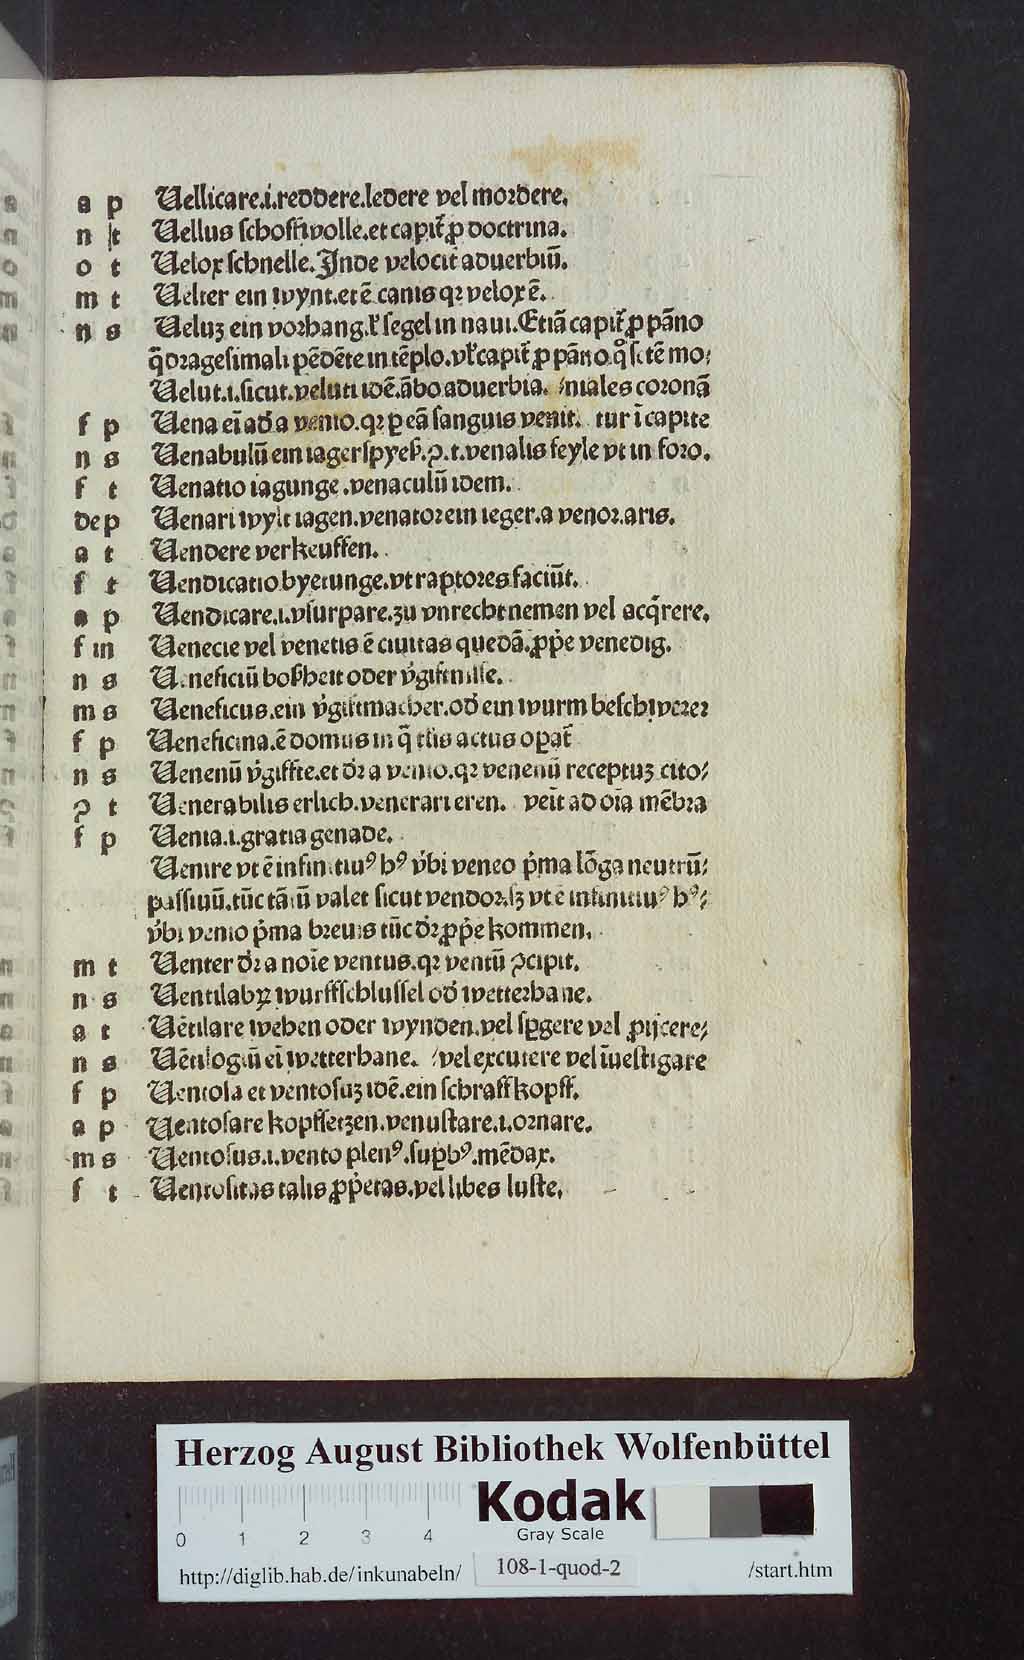 a p Uellicare.i.reddere.ledere vel mordere.
n t Uellus schoffwolle.et capit᷑ ꝓ doctrina.
o t Uelox schnelle.Inde velocit᷑ aduerbiū.
m t Uelter ein wynt.et ē canis qꝛ velox ē.
n s Ueluꝫ ein vorhang.ł segel in naui.Etiā capit᷑ ꝓ pāno
q̄dragesimali pēdēte in tēplo.vł capit᷑ ꝓ pāno.
Uelut.i.sicut.veluti idē.ābo aduerbia. /niales coronā
f p Uena eī ad̄ a venio.qꝛ ꝑ eā sanguis venit. tur ī capite
n s Uenabulū ein iagerspyeß.ꝯ.t.venalis feyle vt in foro.
f t Uenatio iagunge.venaculū idem.
de p Uenari wylt iagen.venator ein ieger.a venor.aris.
a t Uendere verkeuffen.
f t Uendicatio byetunge.vt raptores faciūt.
a p Uendicare.i.vsurpare.zu vnrecht nemen vel acq̄rere.
f in Uenecie vel venetis ē ciuitas quedā.ꝓpͥe venedig.
n s Ueneficiū boßheit oder v̓giftnisse.
m s Ueneficus.ein v̓giftmacher.od̄ ein wurm beschwerer
f p Ueneficina.ē domus in q̄ tłis actus oꝑat᷑
n s Uenenū v̓giffte.et dr̄ a venio.qꝛ venenū receptuꝫ cito/
ꝯ t Uenerabilis erlich.venerari eren. veīt ad oīa mēbra
f p Uenia.i.gratia genade.
Uenire vt ē infinitiuꝰ hꝰ v̓bi veneo pͥma lōga neutrū/
passiuū.tūc tātū valet sicut vendor.sꝫ vt ē infinitiuꝰ hꝰ/
v̓bi venio pͥma breuis tūc dr̄ ꝓpͥe kommen.
m t Uenter dr̄ a noīe ventus.qꝛ ventū ꝯcipit.
n s Uentilabꝝ wurffschlussel od̄ wetterhane.
a t Uētilare weben oder wynden.vel spergere vel ꝓijcere/
n s Uētilogiū eī wetterhane. /vel excutere vel īuestigare
f p Uentosa et ventosuꝫ idē.ein schraffkopff.
a p Uentosare kopffsetzen.venustare.i.ornare.
m s Uentosus.i.vento plenꝰ.suꝑbꝰ.mēdax.
f t Uentositas talis ꝓpͥetas.vel libes luste.
Herzog August Bibliothek Wolfenbüttel
0 1 2 3 4
Kodak
Gray Scale
http://diglib.hab.de/inkunabeln/ 108-1-quod-2 /start.htm